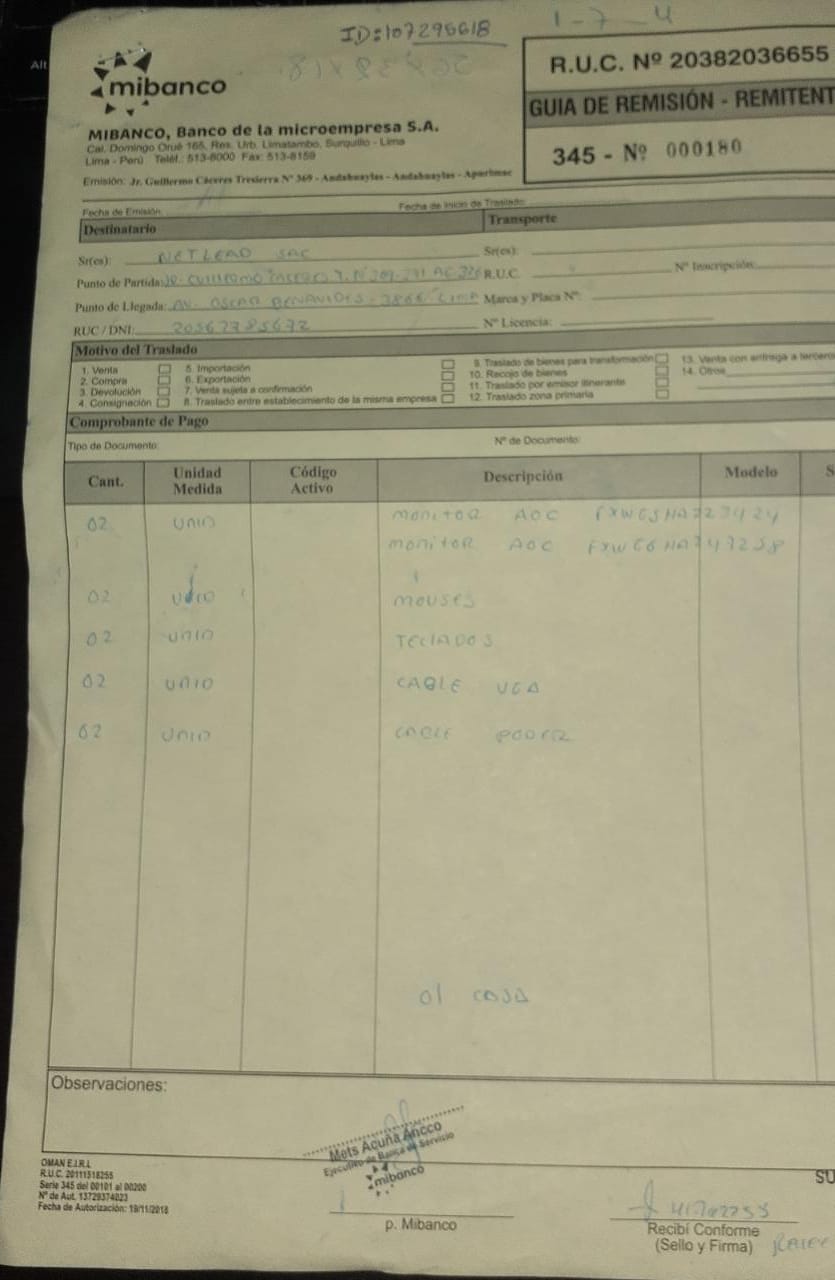 ID:107295618
1-7-4
Alt
mibanco
R.U.C. Nº 20382036655
GUIA DE REMISIÓN - REMITENT
345 - Nº 000180
MIBANCO, Banco de la microempresa S.A.
Cal. Domingo Orué 165, Res. Urb. Limatambo, Surquillo - Lima
Lima - Perú Teléf.: 513-8000 Fax: 513-8159
Emisión: Jr. Guillermo Cáceres Tresierra Nº 369 - Andahuaylas - Andahuaylas - Apurímac
Fecha de Emisión:
Fecha de Inicio de Traslado:
Destinatario
Transporte
Sr(es): NETLEAD SAC
Sr(es):
Punto de Partida:
R.U.C.
Nº Inscripción:
Punto de Llegada: AV. OSCAR BENAVIDES - 3866 LIMA
Marca y Placa Nº:
RUC / DNI: 20562785672
Nº Licencia:
Motivo del Traslado
1. Venta
2. Compra
3. Devolución
4. Consignación
5. Importación
6. Exportación
7. Venta sujeta a confirmación
8. Traslado entre establecimiento de la misma empresa
9. Traslado de bienes para transformación
10. Recojo de bienes
11. Traslado por emisor itinerante
12. Traslado zona primaria
13. Venta con entrega a tercero
14. Otros
Comprobante de Pago
Tipo de Documento:
Nº de Documento:
Cant. Unidad Medida Código Activo Descripción Modelo S
02 UNID MONITOR AOC
MONITOR AOC
02 UNID MOUSES
02 UNID TECLADOS
02 UNID CABLE VGA
02 UNID CABLE PODER
01 CAJA
Observaciones:
Mets Acuña Ancco
Ejecutivo de Banca de Servicio
mibanco
OMAN E.I.R.L
R.U.C. 20111518255
Serie 345 del 00101 al 00200
Nº de Aut. 13729374023
Fecha de Autorización: 19/11/2018
p. Mibanco
SU
Recibí Conforme
(Sello y Firma)